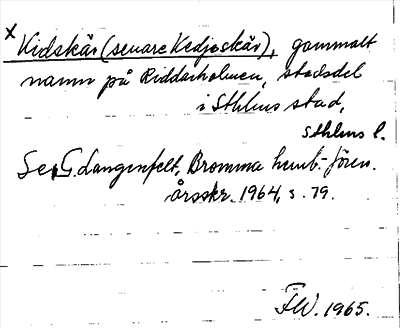 x Kidskär (senare Kedjeskär), gammalt
namn på Riddarholmen, stadsdel
i Sthlms stad,
Sthlms l.
Se G. Langenfelt, Bromma hemb.-fören.
årsskr. 1964, s. 79.
F.W. 1965.